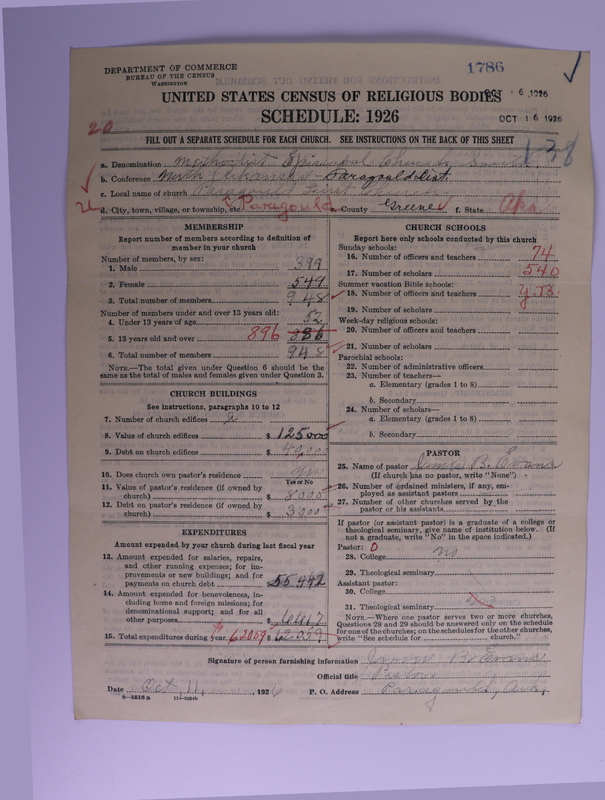 DEPARTMENT OF COMMERCE
BUREAU OF THE CENSUS
WASHINGTON
1786
OCT 16 1926
UNITED STATES CENSUS OF RELIGIOUS BODIES
SCHEDULE: 1926
OCT 16 1926
20
FILL OUT A SEPARATE SCHEDULE FOR EACH CHURCH. SEE INSTRUCTIONS ON THE BACK OF THIS SHEET
138
a. Denomination Methodist Episcopal Church, South
b. Conference North Arkansas - Paragould Dist.
c. Local name of church Paragould First Church
d. City, town, village, or township, etc. Paragould e. County Greene f. State Ark
MEMBERSHIP
Report number of members according to definition of
member in your church
Number of members, by sex:
1. Male 399
2. Female 549
3. Total number of members 948
Number of members under and over 13 years old:
4. Under 13 years of age 52
5. 13 years old and over 896 886
6. Total number of members 948
NOTE.—The total given under Question 6 should be the
same as the total of males and females given under Question 3.
CHURCH BUILDINGS
See instructions, paragraphs 10 to 12
7. Number of church edifices 2
8. Value of church edifices $ 125000
9. Debt on church edifices $
10. Does church own pastor's residence Yes
Yes or No
11. Value of pastor's residence (if owned by
church) $ 8000
12. Debt on pastor's residence (if owned by
church) $ 3000
EXPENDITURES
Amount expended by your church during last fiscal year
13. Amount expended for salaries, repairs,
and other running expenses; for im-
provements or new buildings; and for
payments on church debt $ 55442
14. Amount expended for benevolences, in-
cluding home and foreign missions; for
denominational support; and for all
other purposes $
15. Total expenditures during year $ 62059 $ 62059
CHURCH SCHOOLS
Report here only schools conducted by this church
Sunday schools:
16. Number of officers and teachers 74
17. Number of scholars 540
Summer vacation Bible schools:
18. Number of officers and teachers
19. Number of scholars
Week-day religious schools:
20. Number of officers and teachers
21. Number of scholars
Parochial schools:
22. Number of administrative officers
23. Number of teachers—
a. Elementary (grades 1 to 8)
b. Secondary
24. Number of scholars—
a. Elementary (grades 1 to 8)
b. Secondary
PASTOR
25. Name of pastor James B. Evans
(If church has no pastor, write "None")
26. Number of ordained ministers, if any, em-
ployed as assistant pastors
27. Number of other churches served by the
pastor or his assistants
If pastor (or assistant pastor) is a graduate of a college or
theological seminary, give name of institution below. (If
not a graduate, write "No" in the space indicated.)
Pastor: O
28. College no
29. Theological seminary
Assistant pastor:
30. College
31. Theological seminary
NOTE.—Where one pastor serves two or more churches,
Questions 28 and 29 should be answered only on the schedule
for one of the churches; on the schedules for the other churches,
write "See schedule for church."
Signature of person furnishing information James B. Evans
Official title Pastor
Date Oct, 11, 1926
P. O. Address Paragould, Ark,